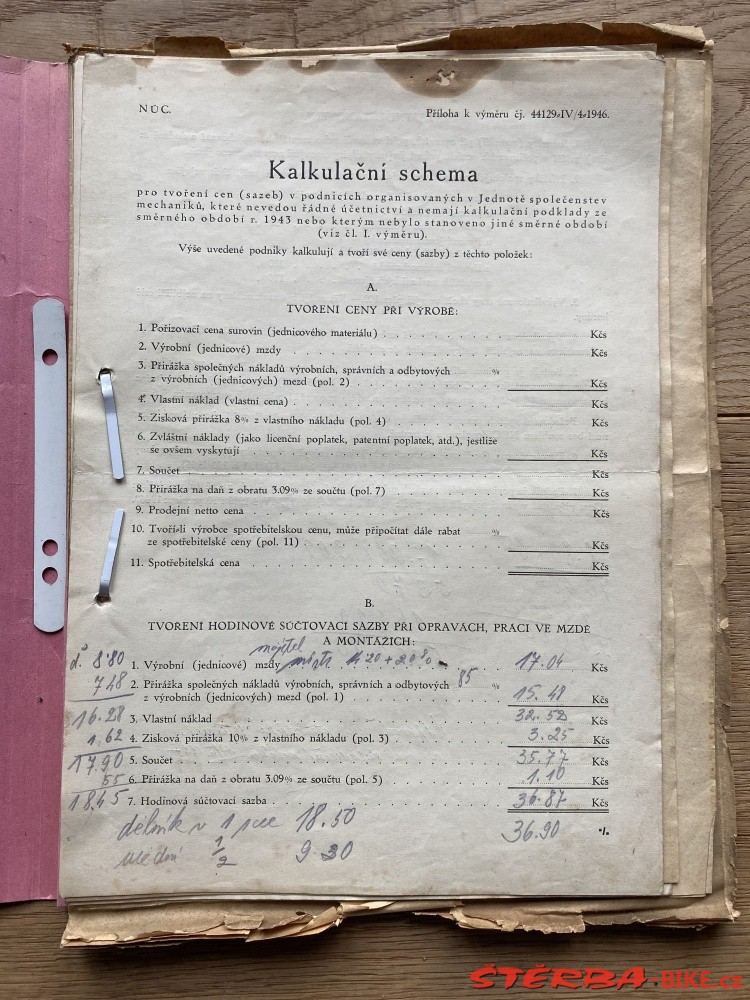 NÚC.
Příloha k výměru čj. 44129-IV/4-1946.
Kalkulační schema
pro tvoření cen (sazeb) v podnicích organisovaných v Jednotě společenstev
mechaniků, které nevedou řádné účetnictví a nemají kalkulační podklady ze
směrného období r. 1943 nebo kterým nebylo stanoveno jiné směrné období
(viz čl. I. výměru).
Výše uvedené podniky kalkulují a tvoří své ceny (sazby) z těchto položek:
A.
TVOŘENÍ CENY PŘI VÝROBĚ:
1. Pořizovací cena surovin (jednicového materiálu) Kčs
2. Výrobní (jednicové) mzdy Kčs
3. Přirážka společných nákladů výrobních, správních a odbytových %
z výrobních (jednicových) mezd (pol. 2) Kčs
4. Vlastní náklad (vlastní cena) Kčs
5. Zisková přirážka 8% z vlastního nákladu (pol. 4) Kčs
6. Zvláštní náklady (jako licenční poplatek, patentní poplatek, atd.), jestliže
se ovšem vyskytují Kčs
7. Součet Kčs
8. Přirážka na daň z obratu 3.09% ze součtu (pol. 7) Kčs
9. Prodejní netto cena Kčs
10. Tvoří-li výrobce spotřebitelskou cenu, může připočítat dále rabat %
ze spotřebitelské ceny (pol. 11) Kčs
11. Spotřebitelská cena Kčs
B.
TVOŘENÍ HODINOVÉ SÚČTOVACÍ SAZBY PŘI OPRAVÁCH, PRÁCI VE MZDĚ
A MONTÁŽÍCH:
majitel
d. 8.80 1. Výrobní (jednicové) mzdy 14.20 + 20% 17.04 Kčs
7.48 2. Přirážka společných nákladů výrobních, správních a odbytových 85 %
z výrobních (jednicových) mezd (pol. 1) 15.48 Kčs
16.28 3. Vlastní náklad 32.52 Kčs
1.62 4. Zisková přirážka 10% z vlastního nákladu (pol. 3) 3.25 Kčs
17.90 5. Součet 35.77 Kčs
55 6. Přirážka na daň z obratu 3.09% ze součtu (pol. 5) 1.10 Kčs
18.45 7. Hodinová súčtovací sazba 36.87 Kčs
dělník v 1 18.50 36.90
učední 1/2 9.30
ŠTĚRBA-BIKE.cz